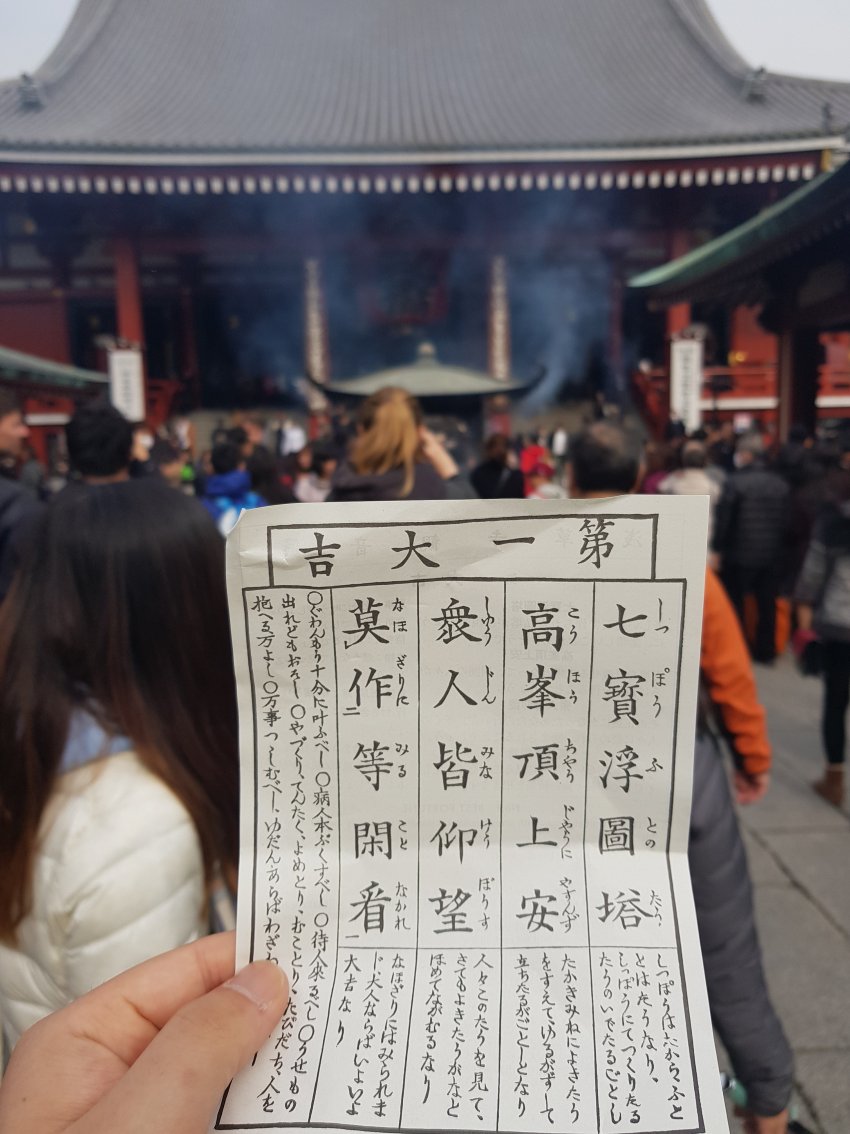 第一大吉
七寶浮圖塔
しつぽうふとのたう
高峯頂上安
こうほうちやうじやうにやすんず
衆人皆仰望
しゆうじんみなけうぼうす
莫作等閑看
なほざりにみることなかれ
しつぽうはたから、ふと
とはたうなり、
しつぽうにてつくりたる
たうのいでたるごとし
たかきみねによきたう
をすえて、けるがずして
立ちたるがごとしとなり
人々このたうを見て、
さてもよきたうかなと
ほめてながむるなり
なほざりにはみられま
じ、大人ならばいよいよ
大吉なり
〇ぐわんもう十分に叶ふべし〇病人本ぷくすべし〇待人来るべし〇うせもの
出れどもおそし〇やづくり、てんたく、よめとり、むことり、たびだち、人を
抱へる万よし〇万事つゝしむべし、ゆだんあらばわざわ